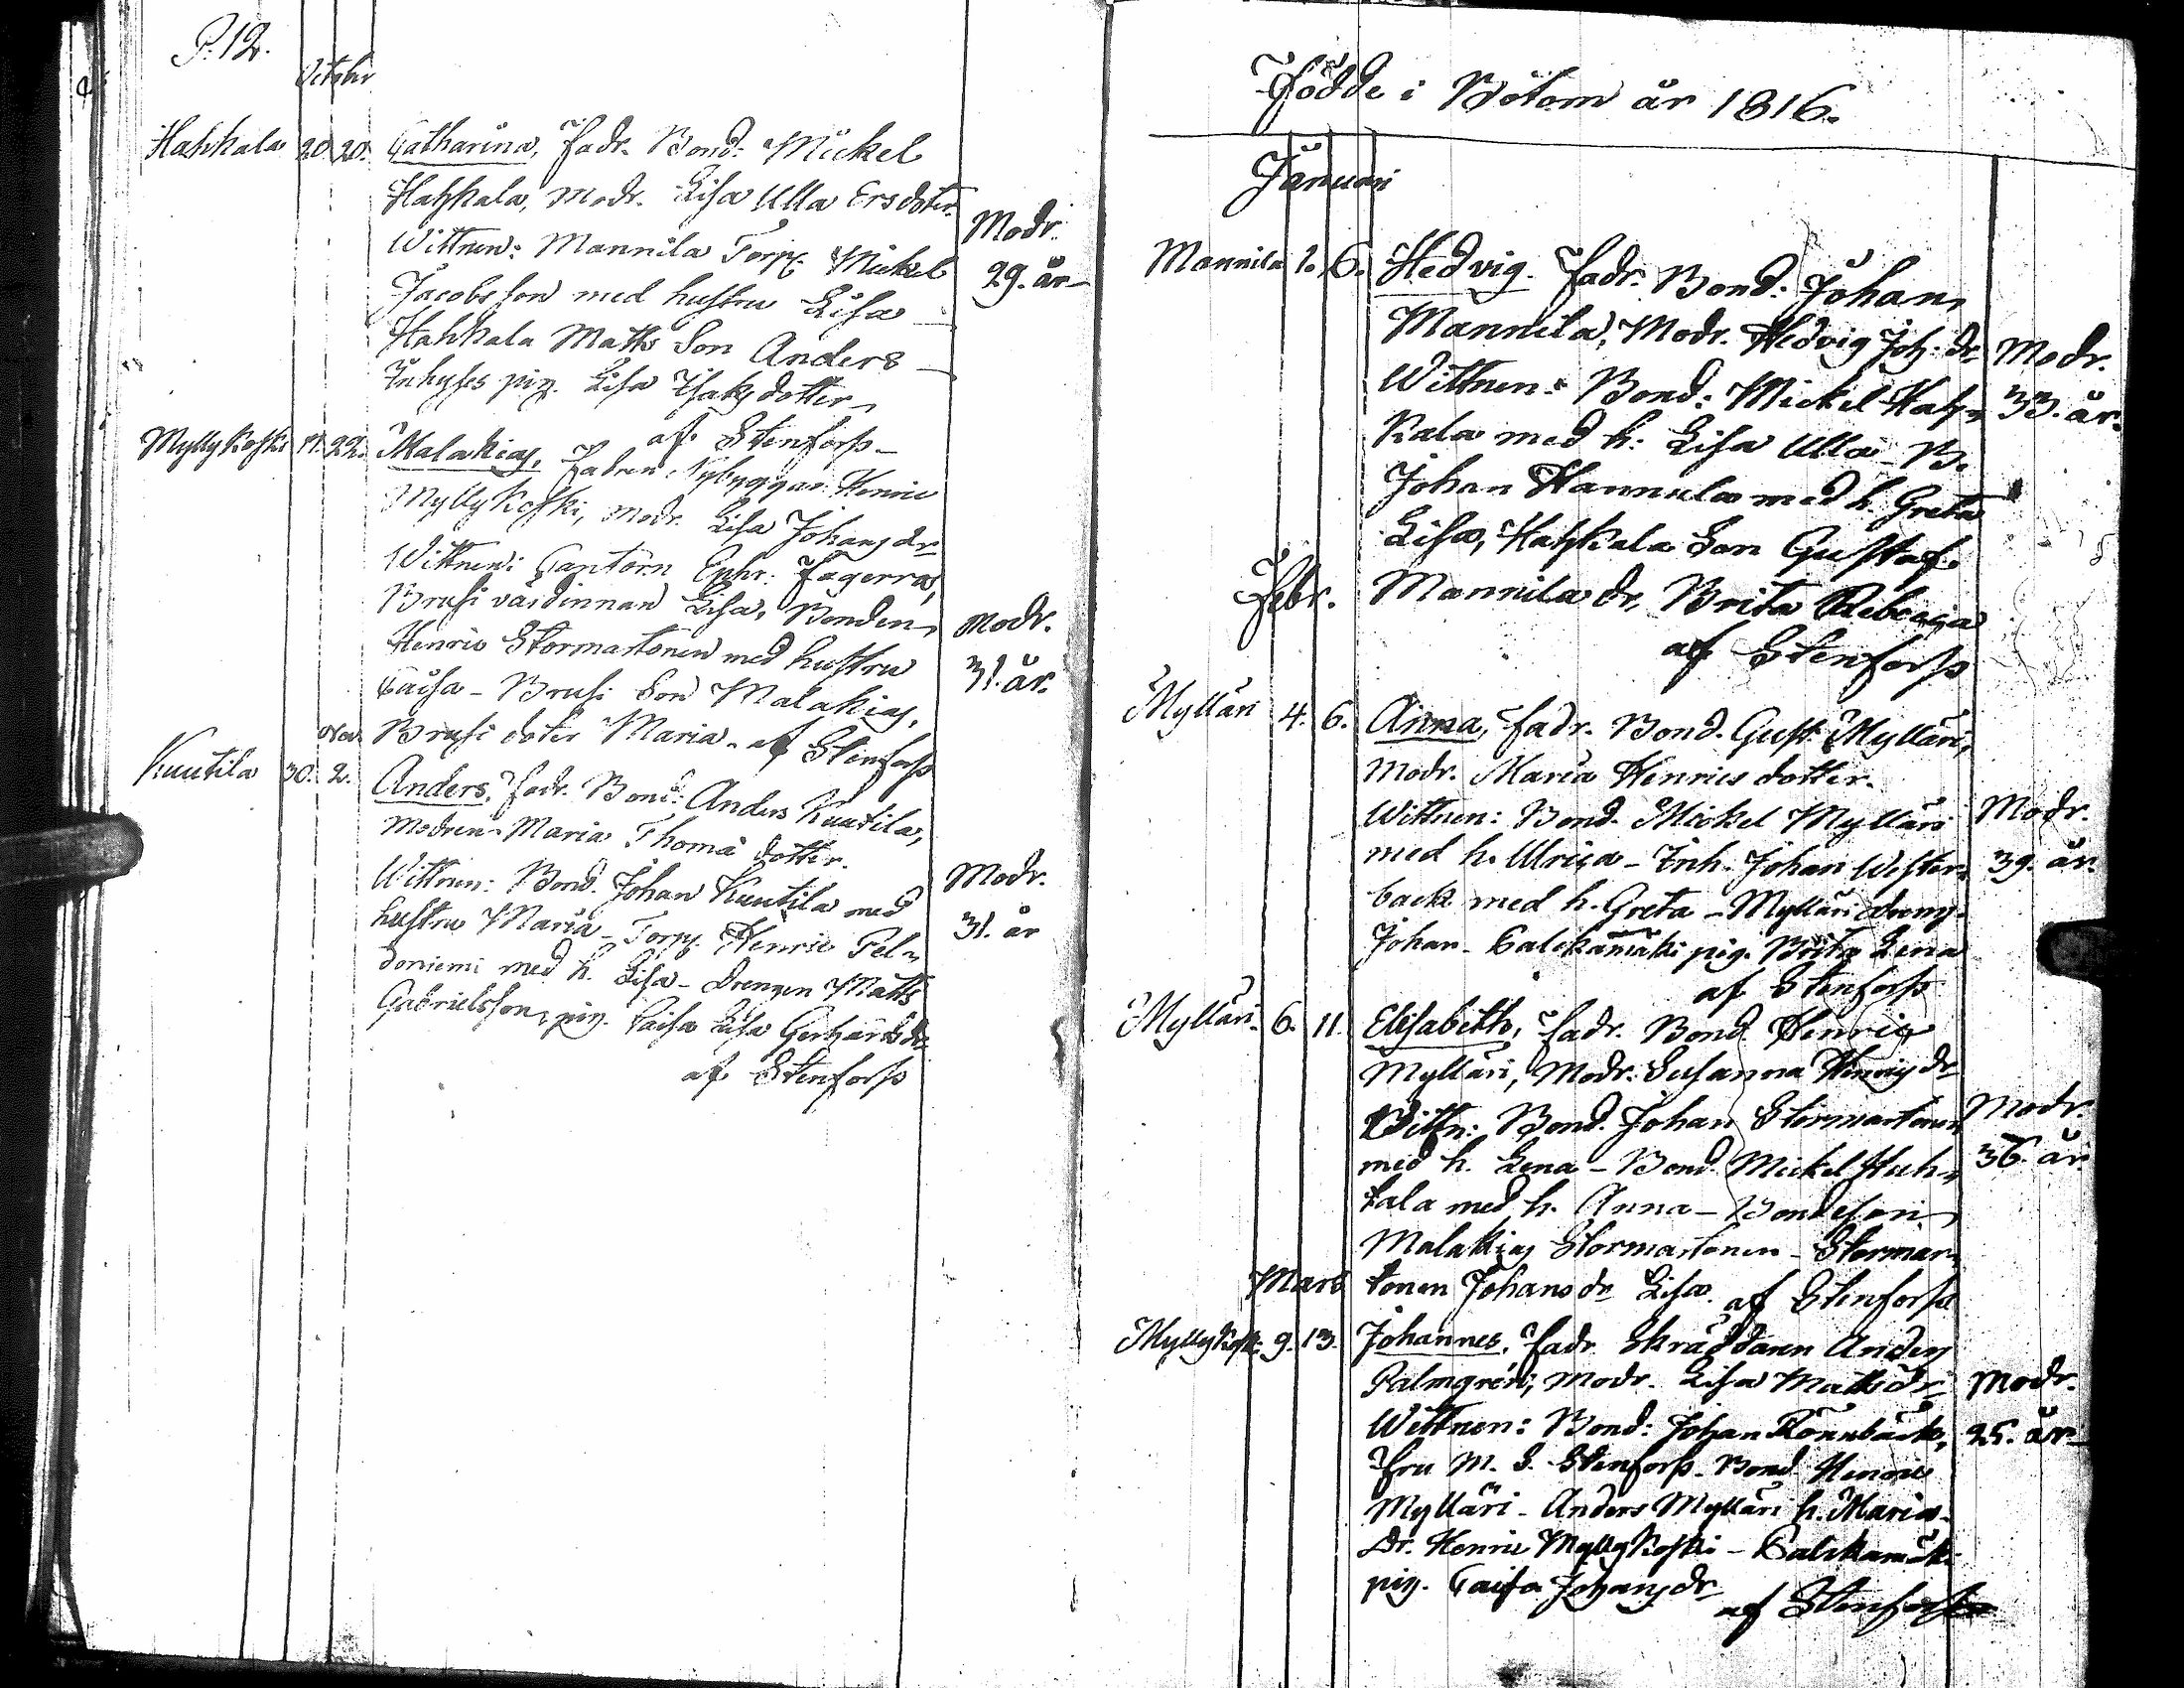 P. 12.
Octobr
Hahkala 20. 20. Catharina, fadr. Bond: Mickel
Hahkala, Modr. Lisa Ulla Ersdoter.
Wittnen: Mannila Torp. Mickel
Modr.
Jacobsson med hustru Lisa
29. år
Hahkala Matts Son Anders
Inhyses pig. Lisa Isaksdotter
af Stenforss
Myllykoski 22. Malakias, Fadren, Nybyggar. Henric
Myllykoski, Modr. Lisa Johansdr
Wittnen: Cantorn Ephr. Fagerroos,
Brusi värdinnan Lisa, Bonden
Modr.
Henric Stormartonen med hustru
31. år.
Caisa - Brusi Son Malakias,
Brusi doter Maria. af Stenforss
Nov.
Kuutila 30. 2. Anders, fadr. Bond: Anders Kuutila,
Modren Maria Thomä dotter.
Wittnen: Bond. Johan Kuutila med
Modr.
hustru Maria - Torp. Henric Pel-
31. år
doniemi med h. Lisa - Drengen Matts
Gabrielsson, pig. Caisa Lisa Gerhardsdr
af Stenforss
Födde i Bötom år 1816.
Januari
Mannila 1. 6. Hedvig. fadr. Bond: Johan
Mannila, Modr. Hedvig Joh. dr
Modr.
Wittnen: Bond: Mickel Hah-
33. år.
kala med h: Lisa Ulla - B.
Johan Hannula med h. Greta
Lisa, Hahkala Son Gustaf.
Febr.
Mannila dr, Brita Rebecca
af Stenforss
Mylläri 4. 6. Anna, fadr. Bond. Gust. Mylläri,
Modr. Maria Henrics dotter.
Wittnen: Bond. Mickel Mylläri
Modr.
med h. Ulrica - Inh. Johan Wester-
39. år.
back med h. Greta - Mylläri dreng.
Johan - pig. Brita Lena
af Stenforss
Mylläri. 6. 11. Elisabeth, fadr. Bond. Henric
Mylläri, Modr: Susanna Henricsdr
Wittn: Bond. Johan Stormartonen
Modr.
med h. Lena - Bond. Mickel Huh-
36. år.
tala med h. Anna - Bondeson
Malakias Stormartonen - Stormar-
Mars
tonen Johans dr Lisa. af Stenforss
Myllykoski 9. 13. Johannes, fadr. Skräddaren Anders
Palmgren, Modr. Lisa Mattsdr
Modr.
Wittnen: Bond: Johan Rönnbäck,
25. år
Fru M. S. Stenforss. Bond. Henric
Mylläri - Anders Mylläri h. Maria -
Dr. Henric Myllykoski -
pig. Caisa Johansdr
af Stenforss